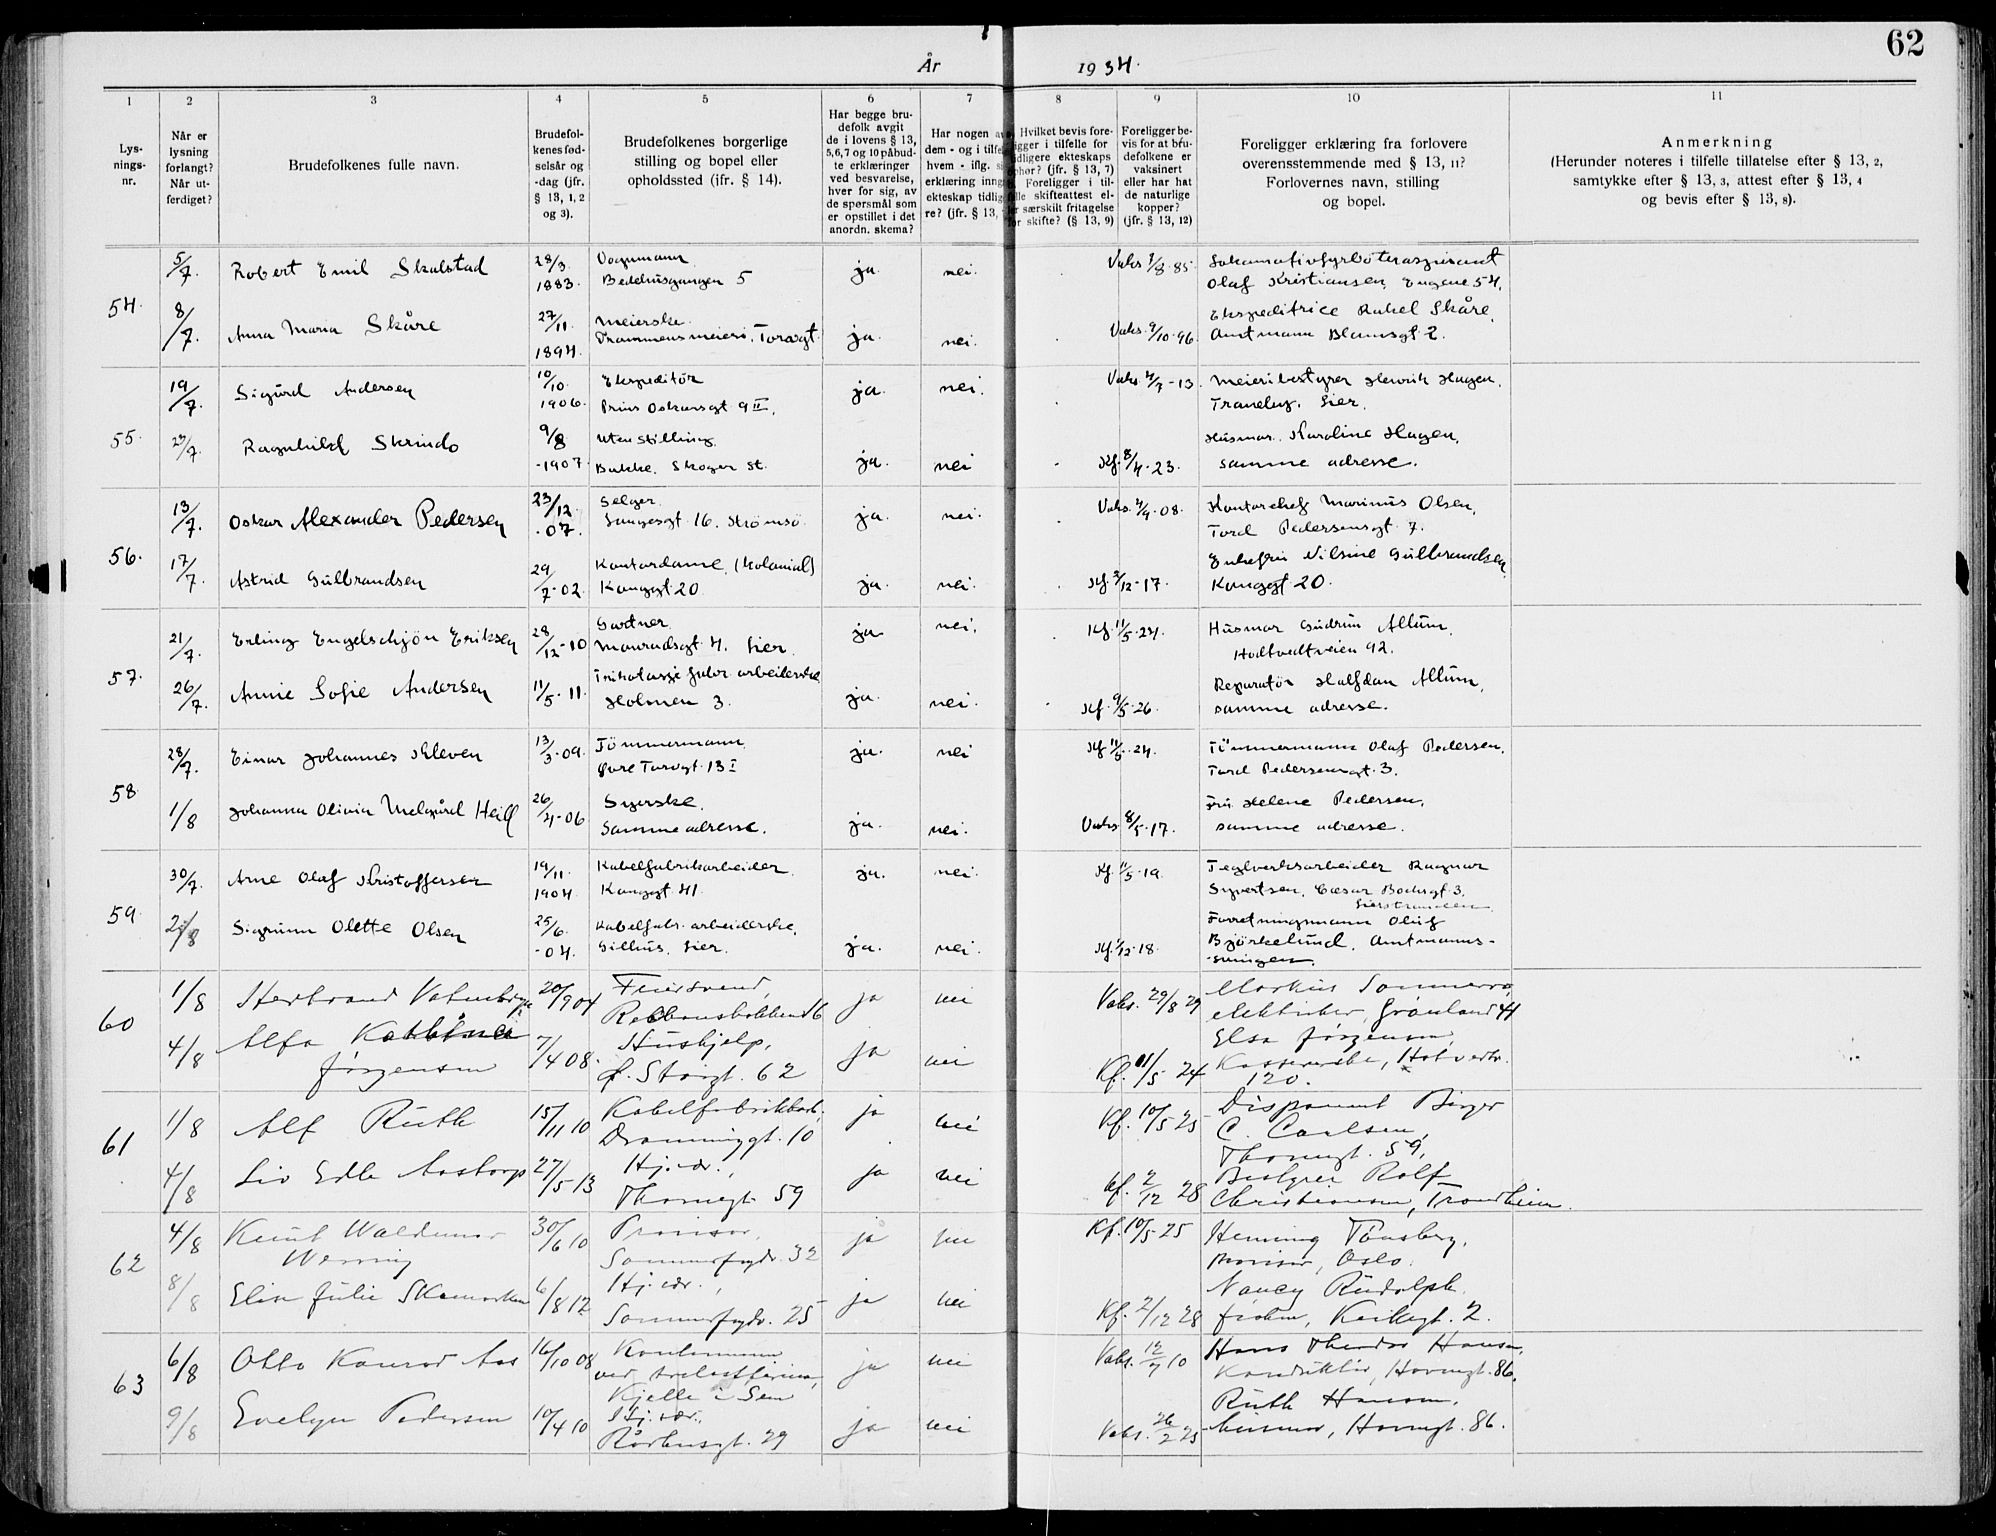 62
År 1934.
1 2 3 4 5 6 7 8 9 10 11
Lys-
nings-
nr.
Når er
lysning
forlangt?
Når ut-
ferdiget?
Brudefolkenes fulle navn.
Brudefol-
kenes fød-
selsår og
-dag (jfr.
§ 13, 1, 2
og 3).
Brudefolkenes borgerlige
stilling og bopel eller
opholdssted (ifr. § 14).
Har begge bru-
defolk avgit
de i lovens § 13,
5,6,7 og 10 påbud-
te erklæringer
ved besvarelse,
hver for sig, av
de spørsmål som
er opstillet i det
anordn. skema?
Har nogen av
dem - og i tilfel
hvem - iflg. si
erklæring inng
ekteskap tidlig
re? (jfr. § 13,
Hvilket bevis fore-
ligger i tilfelle for
tidligere ekteskaps
ophør? (jfr. § 13, 7)
Foreligger i til-
felle skifteattest el-
ler særskilt fritagelse
for skifte? (§ 13, 9)
Foreligger be-
vis for at bru-
defolkene er
vaksinert
eller har hat
de naturlige
kopper?
(jfr. § 13, 12)
Foreligger erklæring fra forlovere
overensstemmende med § 13, 11?
Forlovernes navn, stilling
og bopel.
Anmerkning
(Herunder noteres i tilfelle tillatelse efter § 13, 2,
samtykke efter § 13, 3, attest efter § 13, 4
og bevis efter § 13, 8).
54.
5/7. Robert Emil Skalstad 28/3. 1883. Vognmann Bedehusgangen 5 ja. nei. Vaks. 1/8.85.
Olaf Kristiansen, Engene 54.
8/7. Anna Maria Skåre 27/11. 1894. Meierske. Drammens meieri, Torvgt. ja. nei. Vaks. 9/10.96.
Ekspeditrice Rakel Skåre,
Amtmann Blomsgt 2.
55.
19/7. Sigurd Andersen 10/10. 1906. Ekspeditør Prins Oskarsgt. 9 II. ja. nei. Vaks. 4/7-13.
Meieribestyrer Henrik Hagen,
Traneby. Lier.
23/7. Ragnhild Skrindo 9/8 -1907. Uten stilling. Bakke. Skoger st. ja. nei Kf. 8/4.23.
Husmor. Karoline Hagen,
samme adresse.
56.
13/7. Oskar Alexander Pedersen 23/12. .07. Selger. 16. Strømsø ja. nei. Vaks. 4/9.08.
Kontorchef Marinus Olsen,
Tord Pedersensgt. 7.
17/7. Astrid Gulbrandsen 29/7-02. Kontordame. (Kolonial) Konggt 20 ja. nei. Kf. 3/12-17.
Enkefru Nilsine Gulbrandsen,
Konggt 20.
57.
21/7. Erling Engelschjøn Eriksen 28/12-10 Gartner. 4. Lier. ja nei. Kf. 11/5.24.
Husmor Gudrun Allum,
Hotvedtveien 92.
26/7. Annie Sofie Andersen 11/5-11. Trikotasje fabr. arbeiderske Holmen 3. ja. nei. Kf. 9/5.26.
Reparatør Halfdan Allum,
samme adresse.
58.
28/7. Einar Johannes Kleven 13/3.09. Tømmermann. Øvre Torvgt. 13 I ja. nei Kf 11/5.24.
Tømmermann Olaf Pedersen,
Tord Pedersensgt. 3.
1/8 Johanna Olivia Melgård Heill 26/4-06 Syerske. Samme adresse. ja. nei. Vaks. 8/5.17.
Fru Helene Pedersen,
samme adresse.
59.
30/7. Arne Olaf Kristoffersen 19/11. 1904. Kabelfabrikarbeider. Konggt 41. ja. nei. Kf. 11/5.19.
Teglverksarbeider Ragnar
Syvertsen. Cæsar Bodsgt. 3.
Lierstranden
2/8 Sigrunn Olette Olsen 25/6. -04. Kabelfabr. arbeiderske, Gilhus. Lier. ja. nei. Kf. 1/12.18.
Forretningsmann Oluf
Bjørkelund, Amtmann-
-svingen.
60
1/8 Herbrand 20/9 04 Feiersvend, ja nei Vaks. 29/8 29
elektriker, Grønland 41
4/8 Alfa Jørgensen 7/4 08. Hushjelp, Ø. Storgt. 62 ja nei Kf. 11/5 24
Elsa Jørgensen,
Kassererske, Hotvedtv.
120.
61
1/8 Alf Ruth 15/11 10 Kabelfabrikkarb. Dronninggt. 10 ja nei Kf. 10/5 25
Disponent Birger
C. Carlsen,
Thornegt. 59,
4/8 Liv Edle Aastorp 27/5 13 Hj.vær., Thornegt. 59 ja nei Kf. 2/12 28
Bestyrer Rolf
Christiansen, Trondheim.
62
4/8 Knut Waldemar Werring 30/6 10 Provisor, Sommerfrydv. 32 ja nei Kf. 10/5 25
Henning Tønsberg,
Provisor, Oslo.
8/8 Elise Julie 6/8 12 Hj.vær., Sommerfrydv. 25 ja nei Kf. 2/12 28
Nancy Rudolph
frøken, Kirkegt. 2.
63
6/8 Otto Konrad Aas 16/10 08 Kontormann ved Kjelle i Sem ja nei Vaks. 12/7 10
Hans Theodor Hansen,
Konduktør, Havnegt. 86.
9/8 Evelyn Pedersen 10/4 10 Hj.vær., Rådhusgt. 29 ja nei Vaks. 26/2 25
Ruth Hansen,
husmor, Havnegt. 86.